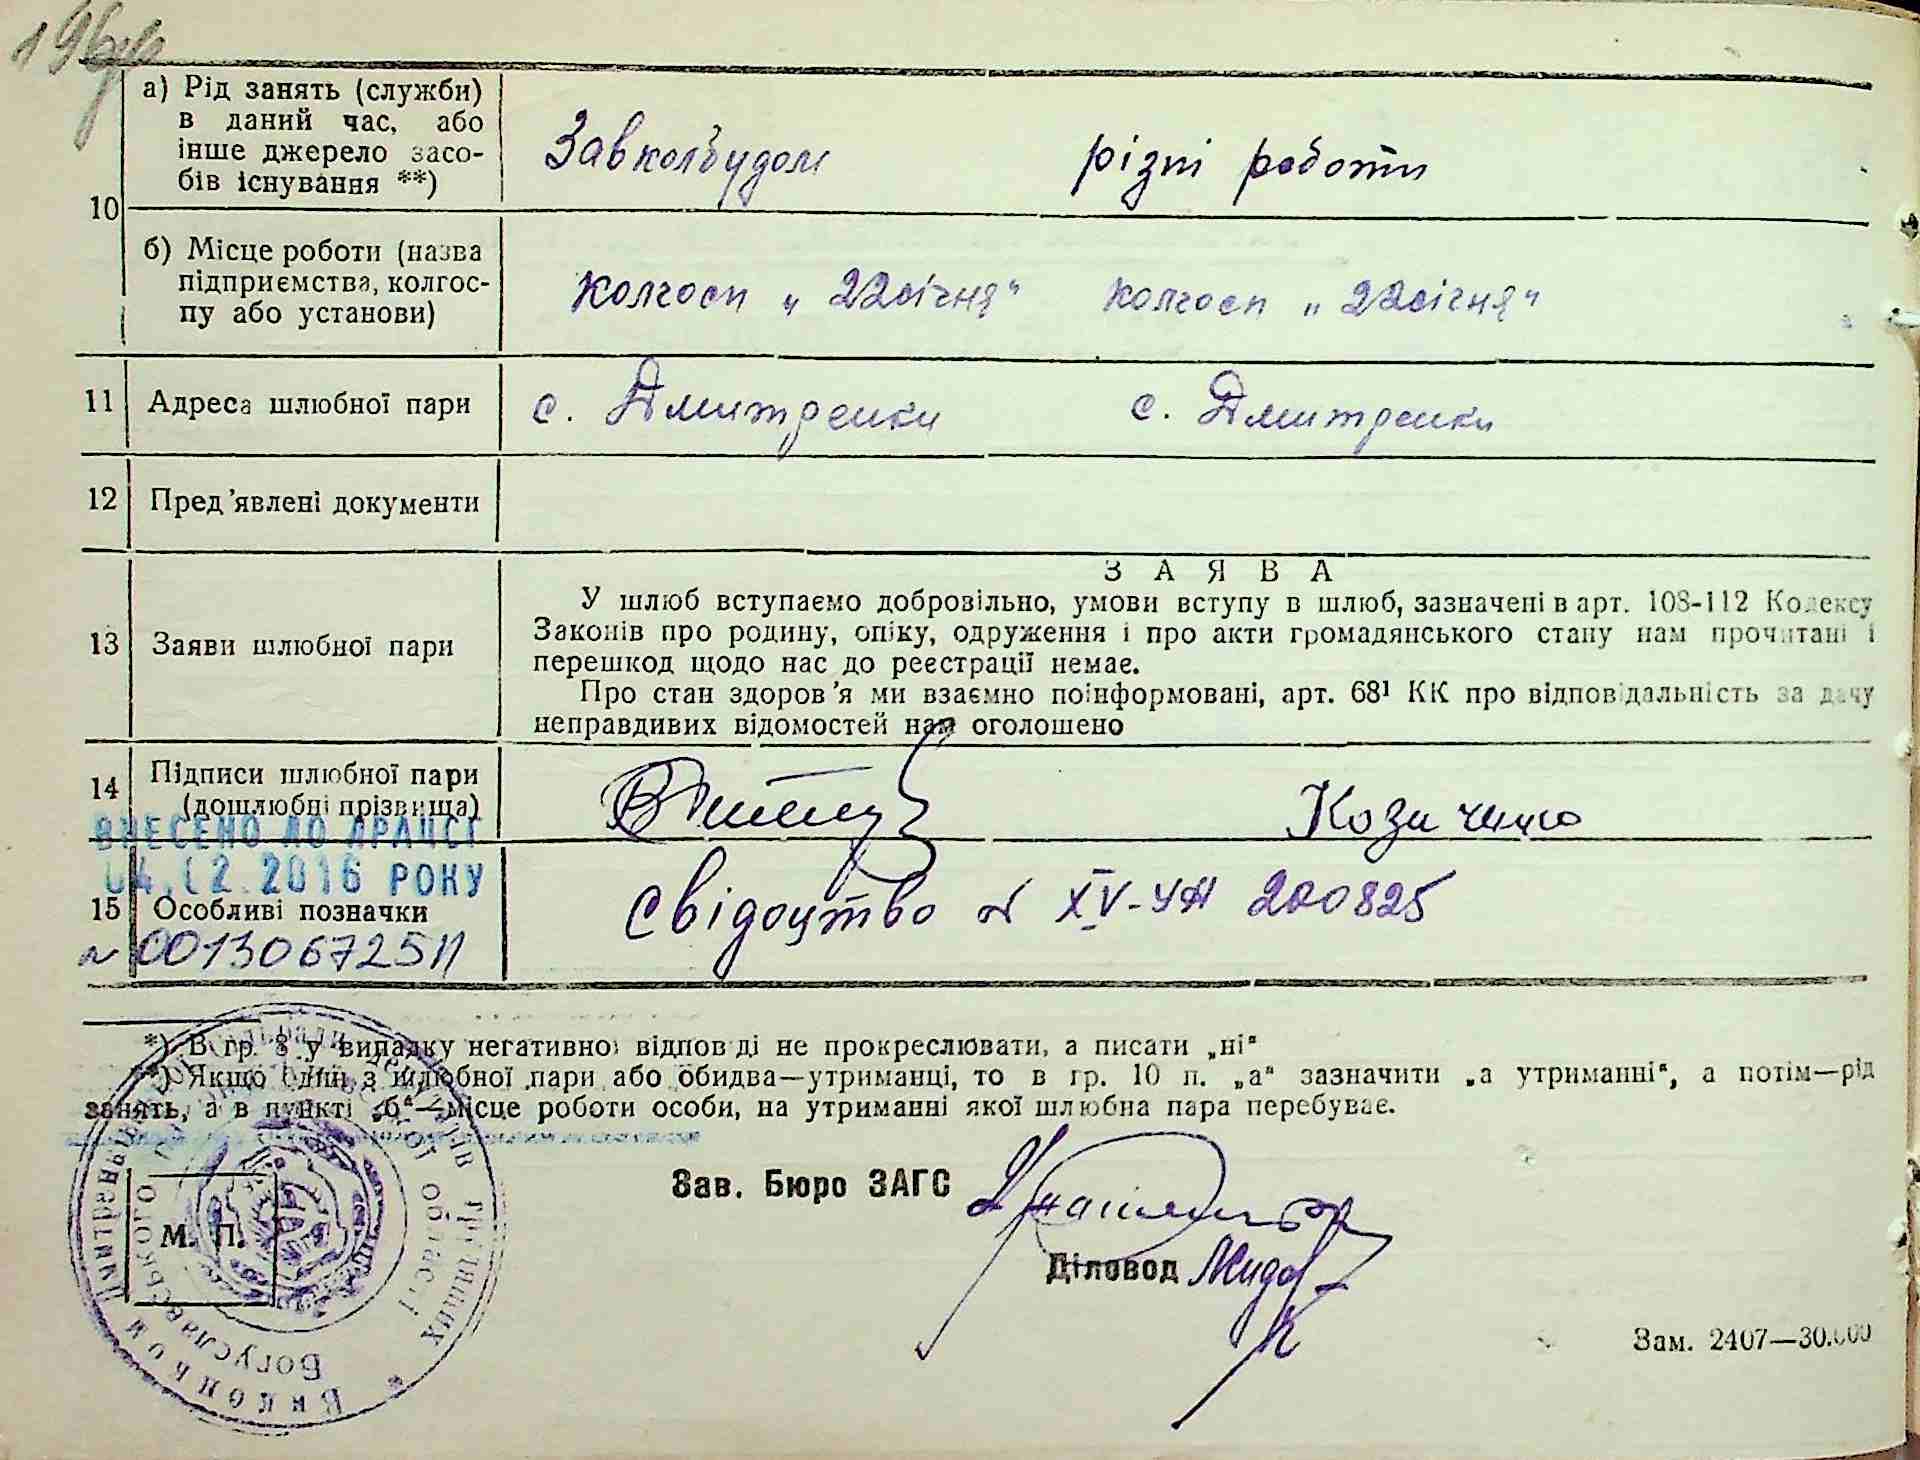 а) Рід занять (служби)
в даний час, або
інше джерело засо-
бів існування **)
Завколбудом різні роботи
10
б) Місце роботи (назва
підприємства, колгос-
пу або установи)
Колгосп „ 22 січня“ Колгосп „ 22 січня“
11 Адреса шлюбної пари с. Дмитренки с. Дмитренки
12 Пред’явлені документи
З А Я В А
У шлюб вступаємо добровільно, умови вступу в шлюб, зазначені в арт. 108-112 Кодексу
13 Заяви шлюбної пари Законів про родину, опіку, одруження і про акти громадянського стану нам прочитані і
перешкод щодо нас до реєстрації немає.
Про стан здоров’я ми взаємно поінформовані, арт. 68¹ КК про відповідальність за дачу
неправдивих відомостей нам оголошено
14 Підписи шлюбної пари
(дошлюбні прізвища)
ВНЕСЕНО ДО ДРАЦСГ
04.02.2016 РОКУ
15 Особливі позначки Свідоцтво № XV-УН 200825
№ 00130672511
*) В гр. 8 у випадку негативної відповіді не прокреслювати, а писати „ні“
**) Якщо один з шлюбної пари або обидва—утриманці, то в гр. 10 п. „а“ зазначити „а утриманні“, а потім—рід
занять, а в пункті „б“—місце роботи особи, на утриманні якої шлюбна пара перебуває.
Зав. Бюро ЗАГС
М. П.
Діловод
Виконком
Богуславського
області
Зам. 2407—30.000